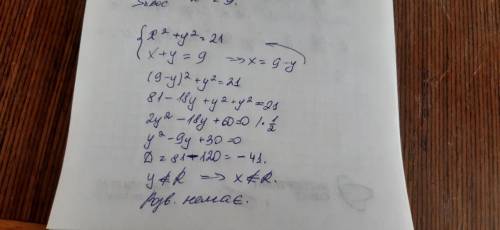 x² + y² = 21
x + y = 9 ⟹ x = 9 - y
(9 - y)² + y² = 21
81 - 18y + y² + y² = 21
2y² - 18y + 60 = 0 / · 1/2
y² - 9y + 30 = 0
D = 81 - 120 = -41.
y ∉ R ⟹ x ∉ R.
Розв. немає.